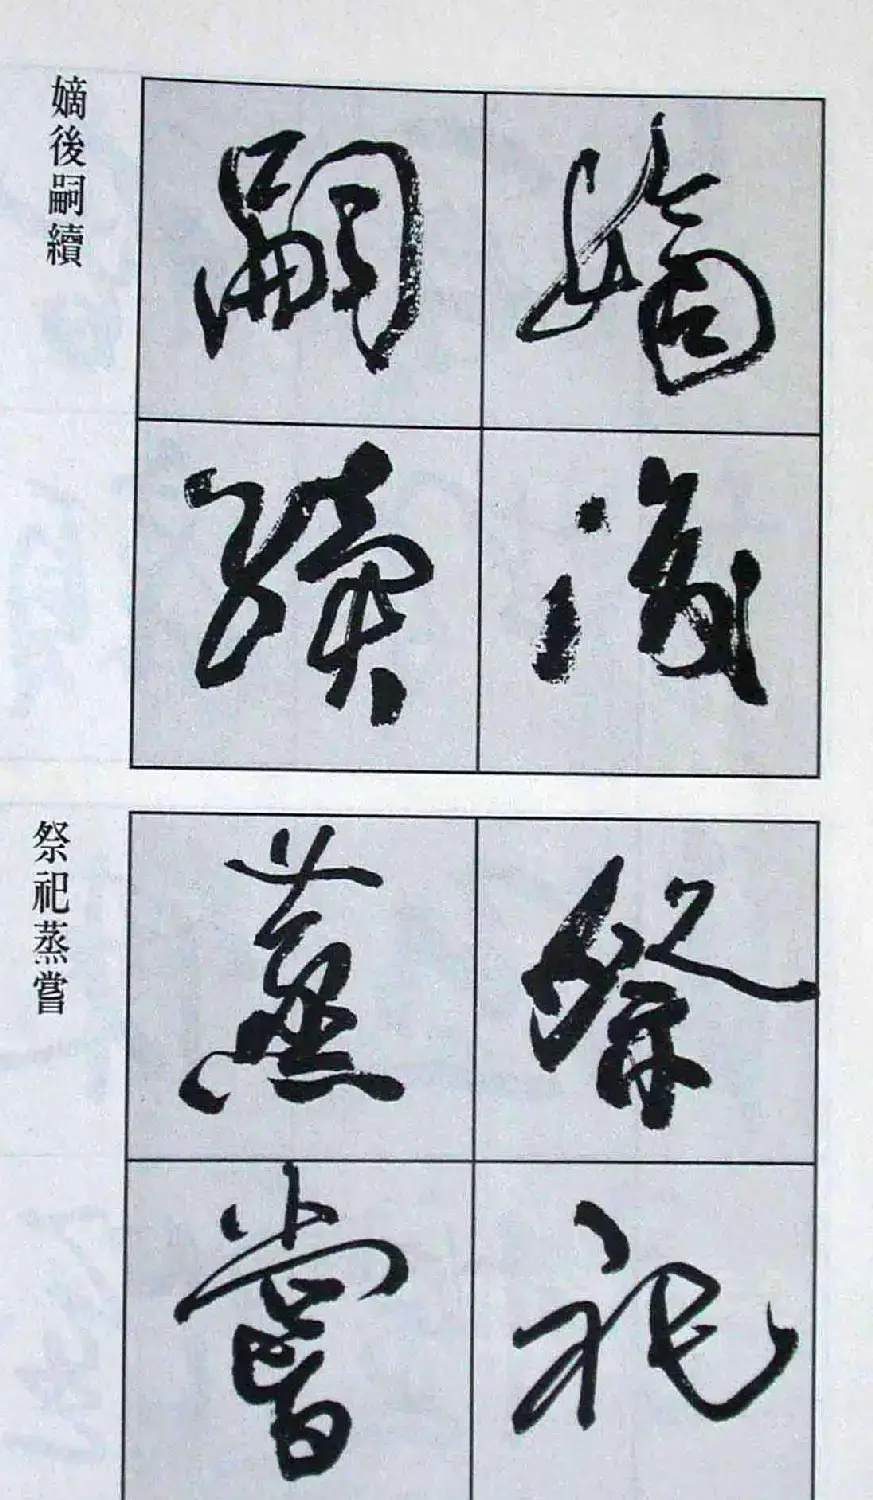 嫡後嗣續
嫡後
嗣續
祭祀蒸嘗
祭祀
蒸嘗